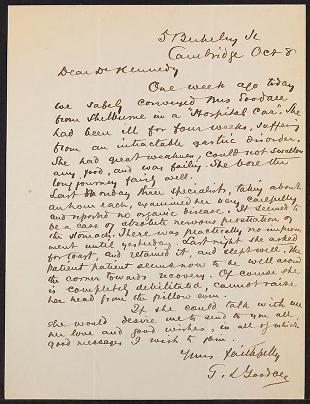 5 Berkeley St
Cambridge Oct 8
Dear Dr Kennedy
One week ago today
we safely conveyed Mrs Goodale
from Shelburne in a "Hospital Car". She
had been ill for four weeks, suffering
from an intractable gastric disorder.
She had great weakness, could not swallow
any food, and was failing. She bore the
long journey fairly well.
Last Monday three specialists, taking about
an hour each, examined her very carefully
and reported no organic disease. It seemed to
be a case of absolute nervous prostration of
the stomach. There was practically no improve-
ment until yesterday. Last night she asked
for toast, and retained it, and slept well. The
patient patient seems now to be well around
the corner towards recovery. Of course she
is completely debilitated, cannot raise
her head from the pillow even.
If she could talk with me
she would desire me to send to you all
her love and good wishes, in all of which
good messages I wish to join.
Yours faithfully
G. L. Goodale